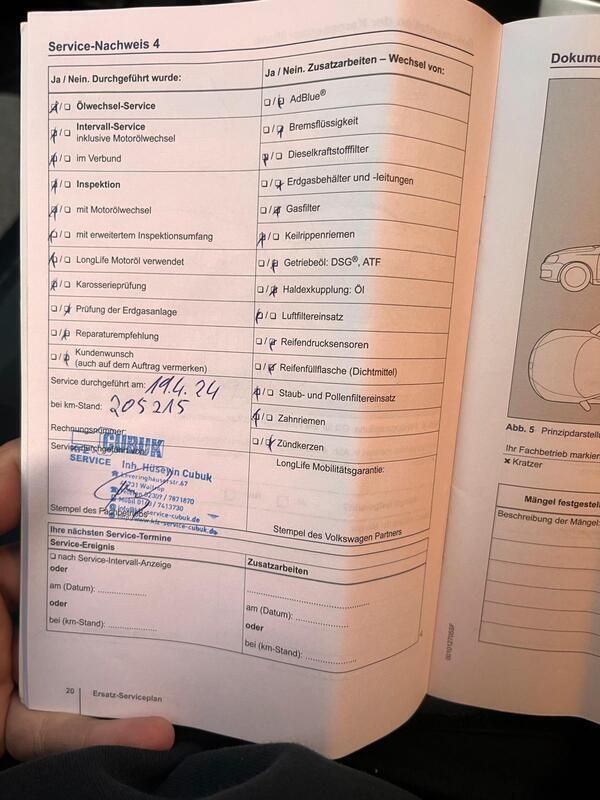 Service-Nachweis 4
Ja / Nein. Durchgeführt wurde:
❏ / ❏ Ölwechsel-Service
❏ / ❏ Intervall-Service
inklusive Motorölwechsel
❏ / ❏ im Verbund
❏ / ❏ Inspektion
❏ / ❏ mit Motorölwechsel
❏ / ❏ mit erweitertem Inspektionsumfang
❏ / ❏ LongLife Motoröl verwendet
❏ / ❏ Karosserieprüfung
❏ / ❏ Prüfung der Erdgasanlage
❏ / ❏ Reparaturempfehlung
❏ / ❏ Kundenwunsch
(auch auf dem Auftrag vermerken)
Service durchgeführt am: 19.4.24
bei km-Stand: 205215
Rechnungsnummer:
Service durchgeführt von:
CUBUK
SERVICE
Inh. Hüseyin Cubuk
Leveringhäuserstr.67
Waltrop
02309 / 7871870
Mobil
/ 7413730
www.kfz-service-cubuk.de
Stempel des Fachbetriebs
Ja / Nein. Zusatzarbeiten – Wechsel von:
❏ / ❏ AdBlue®
❏ / ❏ Bremsflüssigkeit
❏ / ❏ Dieselkraftstofffilter
❏ / ❏ Erdgasbehälter und -leitungen
❏ / ❏ Gasfilter
❏ / ❏ Keilrippenriemen
❏ / ❏ Getriebeöl: DSG®, ATF
❏ / ❏ Haldexkupplung: Öl
❏ / ❏ Luftfiltereinsatz
❏ / ❏ Reifendrucksensoren
❏ / ❏ Reifenfüllflasche (Dichtmittel)
❏ / ❏ Staub- und Pollenfiltereinsatz
❏ / ❏ Zahnriemen
❏ / ❏ Zündkerzen
LongLife Mobilitätsgarantie:
Stempel des Volkswagen Partners
Ihre nächsten Service-Termine
Service-Ereignis
❏ nach Service-Intervall-Anzeige
oder
am (Datum): ..............
oder
bei (km-Stand): ..............
Zusatzarbeiten
..............
am (Datum): ..............
oder
bei (km-Stand): ..............
20 Ersatz-Serviceplan
Dokume
Abb. 5 Prinzipdarstell
Ihr Fachbetrieb markier
✖ Kratzer
Mängel festgestell
Beschreibung der Mängel: